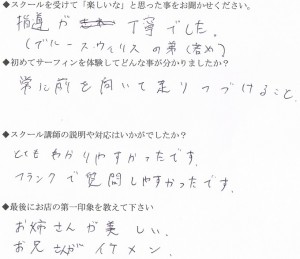 ◆スクールを受けて「楽しいな」と思った事をお聞かせください。
指導が 丁寧でした。
(ブルース・ウィリスの弟(者め)
◆初めてサーフィンを体験してどんな事が分かりましたか？
常に前を向いて走りつづけること。
◆スクール講師の説明や対応はいかがでしたか？
とても わかりやすかったです。
フランクで質問しやすかったです。
◆最後にお店の第一印象を教えて下さい
お姉さんが美しい。
お兄さんがイケメン。